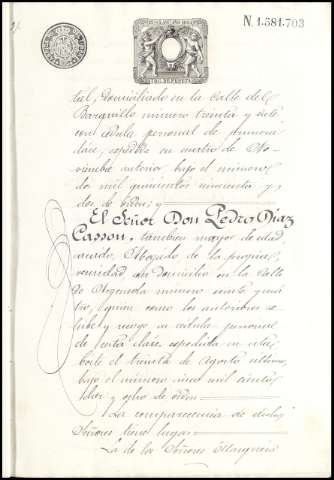 2.
N. 1.581.703
tial, domiciliado en la Calle del
Barquillo número treinta y siete
con cédula personal de primera
clase, expedida en cuatro de No-
viembre anterior, bajo el número
dos mil quinientos noventa y
dos de orden; y
El Señor Don Pedro Diaz
Casson, tambien mayor de edad,
casado, Abogado de la propia
vecindad con domicilio en la Calle
de Argensola número veinte y cua-
tro, quien como los anteriores es-
exhibe y recoge su cédula personal
de sexta clase expedida en esta
Corte el treinta de Agosto ultimo,
bajo el número cinco mil ciento
y ocho de orden
La comparecencia de dichos
Señores tiene lugar:
La de los Señores Marqueses